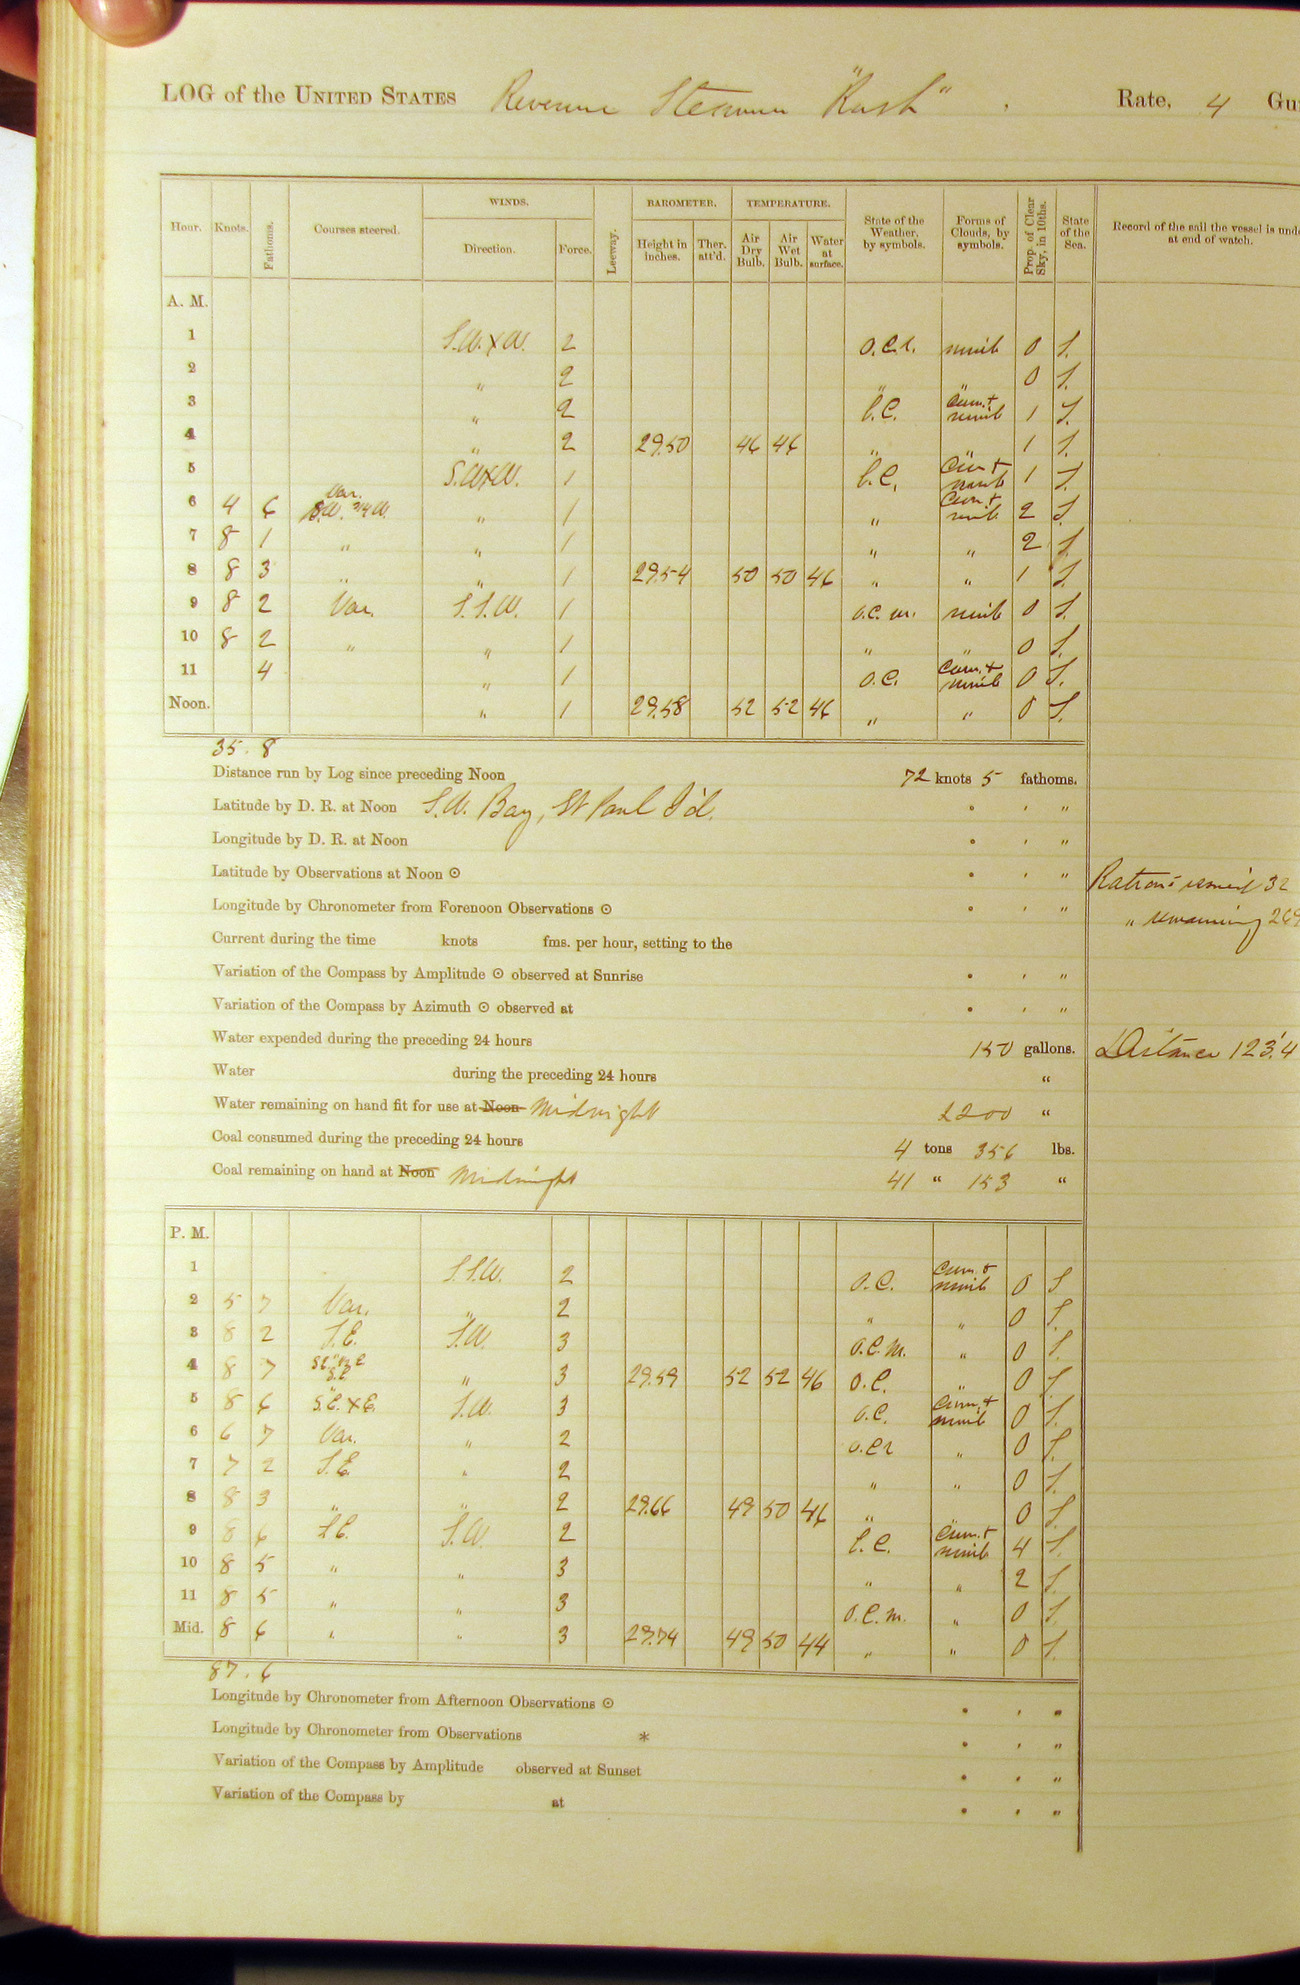 LOG of the UNITED STATES Revenue Steamer "Rush" . Rate, 4 Gu
Hour. Knots. Fathoms. Courses steered. WINDS. Direction. Force. Leeway. BAROMETER. Height in inches. Ther. att'd. TEMPERATURE. Air Dry Bulb. Air Wet Bulb. Water at surface. State of the Weather, by symbols. Forms of Clouds, by symbols. Prop. of Clear Sky, in 10ths. State of the Sea. Record of the sail the vessel is und at end of watch.
A. M.
1 S.W.xW. 2 O.C.r. nimb 0 S.
2 " 2 " " 0 S.
3 " 2 b.C. Cum. + nimb 1 S.
4 " 2 29.50 46 46 " " 1 S.
5 S.WxW. 1 b.C. Cum + nimb 1 S.
6 4 6 Var. S.W. 3/4 W. " 1 " Cum + nimb 2 S.
7 8 1 " " 1 " " 2 S.
8 8 3 " " 1 29.54 50 50 46 " " 1 S.
9 8 2 Var. S.S.W. 1 O.C.m. nimb 0 S.
10 8 2 " " 1 " " 0 S.
11 4 " 1 O.C. Cum. + nimb 0 S.
Noon. " 1 29.58 52 52 46 " " 0 S.
35. 8
Distance run by Log since preceding Noon 72 knots 5 fathoms.
Latitude by D. R. at Noon S.W. Bay, St Paul I'd. ° ′ ″
Longitude by D. R. at Noon ° ′ ″
Latitude by Observations at Noon ⊙ ° ′ ″ Rations issued 32
Longitude by Chronometer from Forenoon Observations ⊙ ° ′ ″ " remaining 269
Current during the time knots fms. per hour, setting to the
Variation of the Compass by Amplitude ⊙ observed at Sunrise ° ′ ″
Variation of the Compass by Azimuth ⊙ observed at ° ′ ″
Water expended during the preceding 24 hours 150 gallons. Distance 123.4
Water during the preceding 24 hours "
Water remaining on hand fit for use at Noon Midnight 2200 "
Coal consumed during the preceding 24 hours 4 tons 356 lbs.
Coal remaining on hand at Noon Midnight 41 " 153 "
P. M.
1 S.S.W. 2 O.C. Cum. + nimb 0 S
2 5 7 Var. " 2 " " 0 S.
3 8 2 S.E. S.W. 3 O.C.m. " 0 S.
4 8 7 " 3 29.59 52 52 46 O.C. " 0 S.
5 8 6 S.E.xE. S.W. 3 O.C. Cum. + nimb 0 S.
6 6 7 Var. " 2 O.C.r " 0 S.
7 7 2 S.E. " 2 " " 0 S.
8 8 3 " " 2 29.66 49 50 46 " 0 S.
9 8 6 S.E. S.W. 2 b.C. Cum. + nimb 4 S.
10 8 5 " " 3 " " 2 S.
11 8 5 " " 3 O.C.m. " 0 S.
Mid. 8 6 " " 3 29.74 49 50 44 " " 0 S.
87. 6
Longitude by Chronometer from Afternoon Observations ⊙ ° ′ ″
Longitude by Chronometer from Observations * ° ′ ″
Variation of the Compass by Amplitude observed at Sunset ° ′ ″
Variation of the Compass by at ° ′ ″